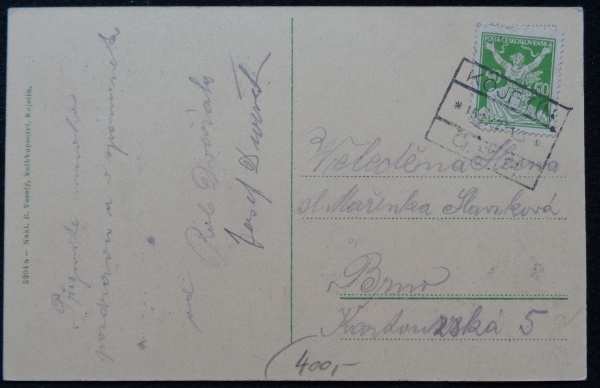 52014 — Nakl. R. Veselý, knihkupectví, Kojetín.
Přijměte mnoho
pozdravu a vzpomínek
od
Rub. Dvořák
Josef Dvořák
POŠTA ČESKOSLOVENSKÁ
50
KOJETÍN
Velectěná Slečna
sl. Mařenka Slavíková
Brno
5
400,-